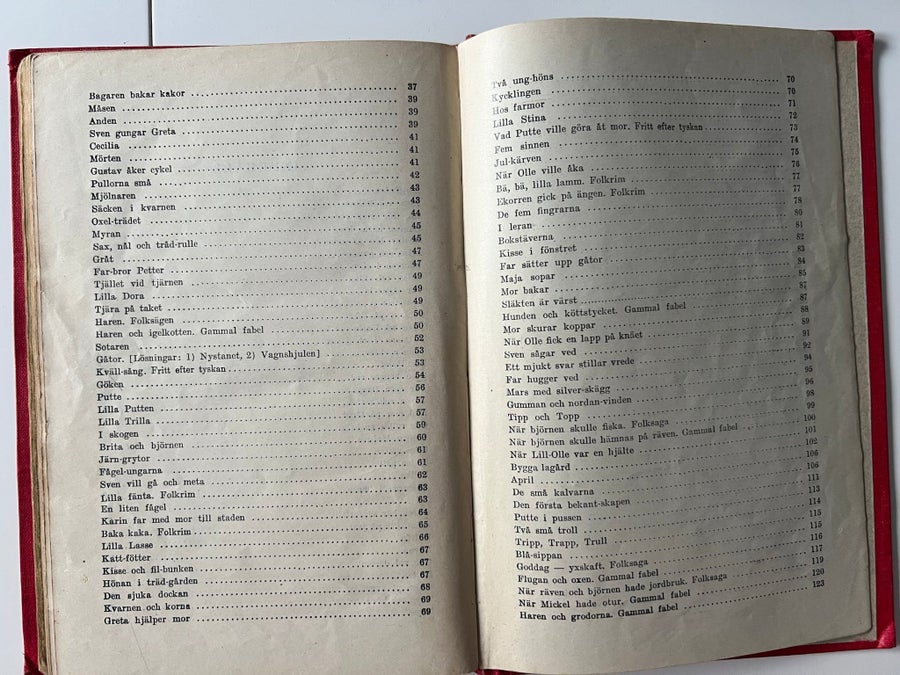 Bagaren bakar kakor 37
Måsen 39
Anden 39
Sven gungar Greta 39
Cecilia 41
Mörten 41
Gustav åker cykel 41
Pullorna små 42
Mjölnaren 43
Säcken i kvarnen 43
Oxel-trädet 44
Myran 45
Sax, nål och tråd-rulle 45
Gråt 47
Far-bror Petter 47
Tjället vid tjärnen 49
Lilla Dora 49
Tjära på taket 49
Haren. Folksägen 50
Haren och igelkotten. Gammal fabel 50
Sotaren 52
Gåtor. [Lösningar: 1) Nystanet, 2) Vagnshjulen] 53
Kväll-sång. Fritt efter tyskan 53
Göken 54
Putte 56
Lilla Putten 57
Lilla Trilla 57
I skogen 59
Brita och björnen 60
Järn-grytor 61
Fågel-ungarna 61
Sven vill gå och meta 62
Lilla fänta. Folkrim 63
En liten fågel 63
Karin far med mor till staden 64
Baka kaka. Folkrim 65
Lilla Lasse 66
Katt-fötter 67
Kisse och fil-bunken 67
Hönan i träd-gården 67
Den sjuka dockan 68
Kvarnen och korna 69
Greta hjälper mor 69
Två ung-höns 70
Kycklingen 70
Hos farmor 71
Lilla Stina 72
Vad Putte ville göra åt mor. Fritt efter tyskan 73
Fem sinnen 74
Jul-kärven 75
När Olle ville åka 76
Bä, bä, lilla lamm. Folkrim 77
Ekorren gick på ängen. Folkrim 77
De fem fingrarna 78
I leran 80
Bokstäverna 81
Kisse i fönstret 82
Far sätter upp gåtor 83
Maja sopar 84
Mor bakar 85
Släkten är värst 87
Hunden och köttstycket. Gammal fabel 87
Mor skurar koppar 88
När Olle fick en lapp på knäet 89
Sven sågar ved 91
Ett mjukt svar stillar vrede 92
Far hugger ved 94
Mars med silver-skägg 95
Gumman och nordan-vinden 96
Tipp och Topp 98
När björnen skulle fiska. Folksaga 99
När björnen skulle hämnas på räven. Gammal fabel 100
När Lill-Olle var en hjälte 101
Bygga lagård 102
April 106
De små kalvarna 106
Den första bekant-skapen 111
Putte i pussen 113
Två små troll 114
Tripp, Trapp, Trull 115
Blå-sippan 115
Goddag — yxskaft. Folksaga 116
Flugan och oxen. Gammal fabel 117
När räven och björnen hade jordbruk. Folksaga 119
När Mickel hade otur. Gammal fabel 120
Haren och grodorna. Gammal fabel 123